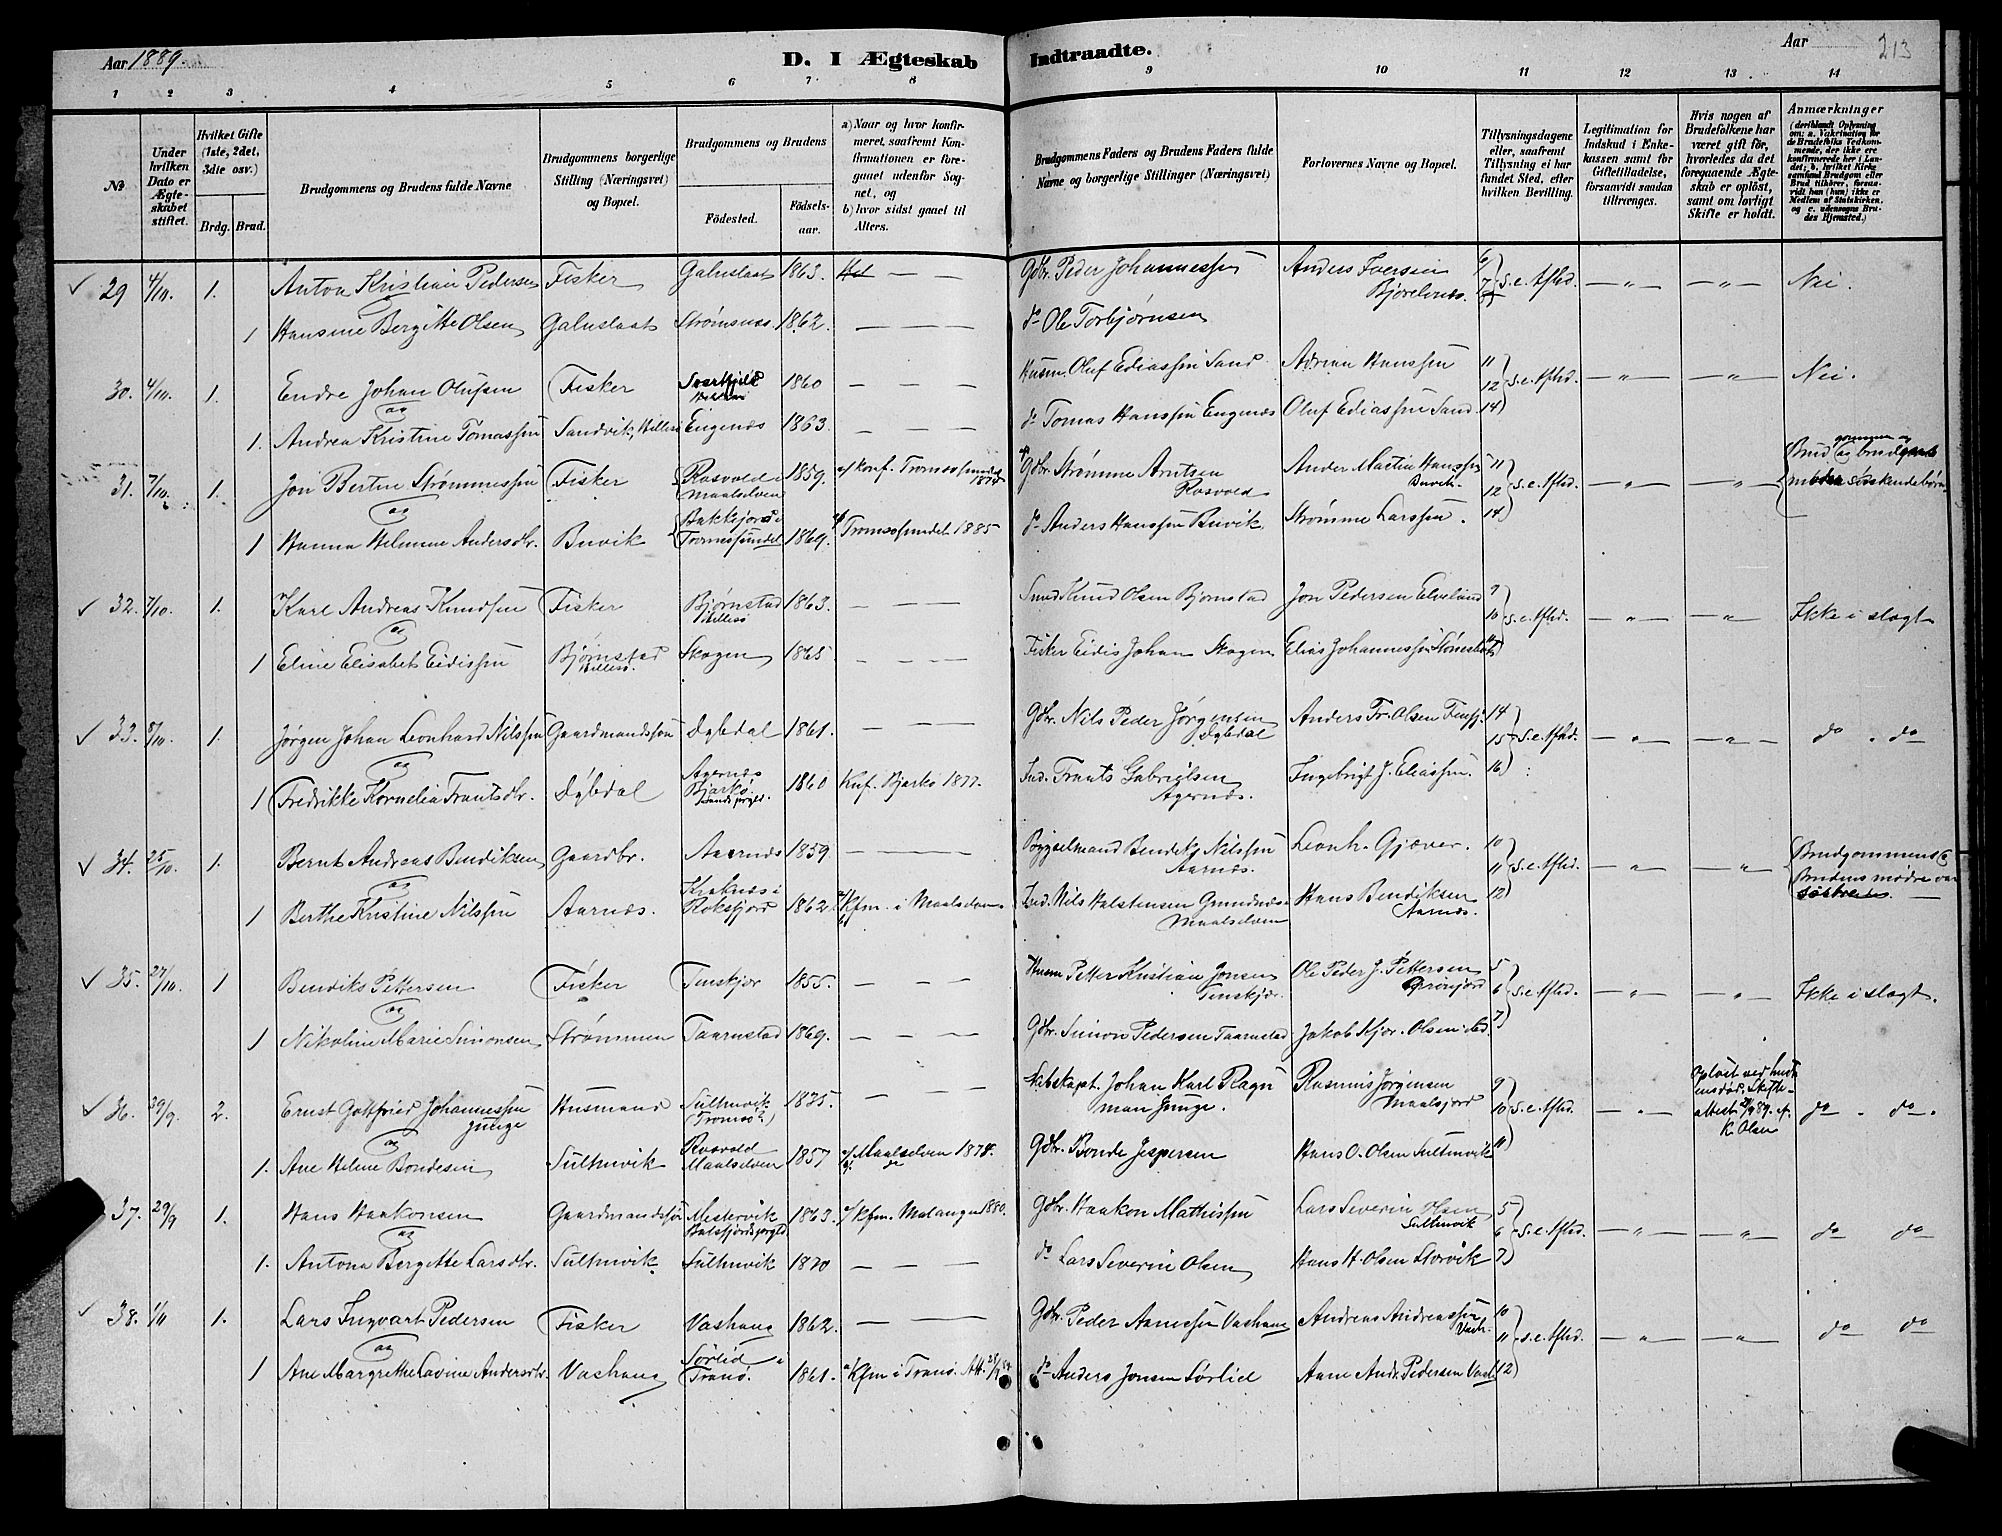 Aar 1889.
D. I Ægteskab Indtraadte.
Aar 213
1 2 3 4 5 6 7 8 9 10 11 12 13 14
№
Under hvilken Dato er Ægteskabet stiftet.
Hvilket Gifte (1ste, 2det, 3die osv.)
Brdg. Brud.
Brudgommens og Brudens fulde Navne
Brudgommens borgerlige Stilling (Næringsvei) og Bopæl.
Brudgommens og Brudens
Födested.
Födselsaar.
a) Naar og hvor konfirmeret, saafremt Konfirmationen er foregaaet udenfor Sognet, og
b) hvor sidst gaaet til Alters.
Brudgommens Faders og Brudens Faders fulde Navne og borgerlige Stillinger (Næringsvei)
Forlovernes Navne og Bopæl.
Tillysningsdagene eller, saafremt Tillysning ei har fundet Sted, efter hvilken Bevilling.
Legitimation for Indskud i Enkekassen samt for Giftetilladelse, forsaavidt saadan tiltrænges.
Hvis nogen af Brudefolkene har været gift för, hvorledes da det foregaaende Ægteskab er oplöst, samt om lovligt Skifte er holdt.
Anmærkninger
(deriblandt Oplysning om: a. Vakcination for de Brudefolks Vedkommende, der ikke ere konfirmerede her i Landet; b. hvilket Kirkesamfund Brudgom eller Brud tilhörer, forsaavidt han (hun) ikke er Medlem af Statskirken, og c. udensogns Brudes Hjemsted.)
29 4/10. 1. Anton Kristian Pedersen Fisker Galnslaat 1863. — — Gdbr. Peder Johannessen Anders Iversen Bjorelvnes. 6 7 s.e.Tfhd. — " — — " — Nei.
og
1 Hansine Bergitte Olsen Galnslaat Strømsnes 1862. — — — do Ole Torbjørnsen
30. 4/10. 1. Endre Johan Olufsen Fisker 1860 — — — Husm. Oluf Ediassen Sand Adrian Hanssen 11 12 14 s.e.Tfhd. — " — — " — Nei.
og
1. Andrea Kristine Tomassen Sandvik, Hilleso Eugenæs 1863. — — — do Tomas Hanssen Eugenæs Oluf Ediassen Sand
31. 7/10. 1. Jon Bertin Strømmessen Fisker Rosvold i Maalselven 1859. a/ konf. Tromsøsundet Gdbr. Strømme Arntsen Rosvold Ander Martin Hanssen Buvik. 11 12 14 s.e.Tfhd. — " — — " —
og
1 Hanna Helmine Andersdtr. Buvik Bakkejord i Tromsøsundet 1869. Tromsøsundet 1885 do Anders Hanssen Buvik. Strømme Larssen.
32. 7/10. 1. Karl Andreas Knudsen Fisker Bjørnstad Hillesö 1863. — — — Knud Olsen Bjørnstad Jon Pedersen Elvelund 9 10 s.e.Tfhd. — " — — " — Ikke i slægt
og
1 Eline Elisabet Eidissen Bjørnstad Hillesö. Skogen 1865 — — — Fisker Eidis Johan Skogen Elias Johannessen
33. 8/10. 1. Jørgen Johan Leonhard Nilssen Gaardmandssøn Dybdal 1861. — — — Gdbr. Nils Peder Jørgensen Dybdal Anders Fr. Olsen Finfj. 14 15 16 s.e.Tfhd. — " — — " — do . do
og
1 Fredrikke Kornelia Frantsdtr. Dybdal Agernæs Bjarkö. Sandsprgld. 1860 Knf. Bjarkö 1877. Ind. Frants Gabrielsen Agernæs. Ingebrigt J. Eliassen.
34. 25/10. 1. Bernt Andreas Bendiksen Gaardbr. Aarnæs 1859. — — — Bøgselmand Bendik Nilssen Aarnæs. Leonh. Gjæver. 10 11 12 s.e.Tfhd. — " — — " — Brudgommens & Brudens mødre var søstre.
og
1 Berthe Kristine Nilssen Aarnæs. Kraknæs i Roksfjord 1862. Kfm. i Maalselven. Ind. Nils Halstensen Grundnæs Maalselven Hans Bendiksen Aarnæs.
35. 27/10. 1 Bendiks Pettersen Fisker Tenskjær 1855. — — — Husm. Petter Kristian Jonsen Tenskjær. Ole Peder J. Pettersen Grönjord 5 6 7 s.e.Tfhd. — " — — " — Ikke i slægt.
og
1 Nikoline Marie Simonsen Strømmen Taarnstad 1869. — — — Gdbr. Simon Pedersen Taarnstad Jakob Kjær. Olsen
36. 29/9. 2. Ernst Gottfried Johannessen Junge Husmand Sultenvik (Tromsö?) 1825. — — — Skibskapt. Johan Karl Ragnman Junge. Rasmus Jørgensen Maalsjord 9 10 11 s.e.Tfhd. — " — Opløst ved hustruens død. Skifteattest 21/9 89. K. Olsen do . do .
og
1. Ane Heline Bondesen Sultenvik Rosvold Maalselven 1857 a/ Maalselven 1874. b/ do Gdbr. Bonde Jespersen Hans O. Olsen Sultenvik
37. 29/9 1. Hans Haakonsen Gaardmandssøn Mestervik Balsfjordsprgld. 1863. a/ Kfm. Malangen 1880. Gdbr. Haakon Mathissen Lars Severin Olsen Sultenvik 5 6 7 s.e.Tfhd. — " — — " — do do
og
1. Antona Bergette Larsdtr. Sultenvik. Sultenvik 1870 — — — do Lars Severin Olsen Hans H. Olsen Storvik
38. 1/11 1. Lars Ingvart Pedersen Fisker Vashaug 1862. — — — Gdbr. Peder Aanessen Vashaug Andreas Andreassen Vash. 10 11 12 s.e.Tfhd. — " — — " — do do
og
1 Ane Margrethe Lavine Andersdtr. Vashaug Sørlid i Tranö. 1861. a/ Kfm i Tranö. do Anders Jonsen Sörlid Aane Andr. Pedersen Vash.